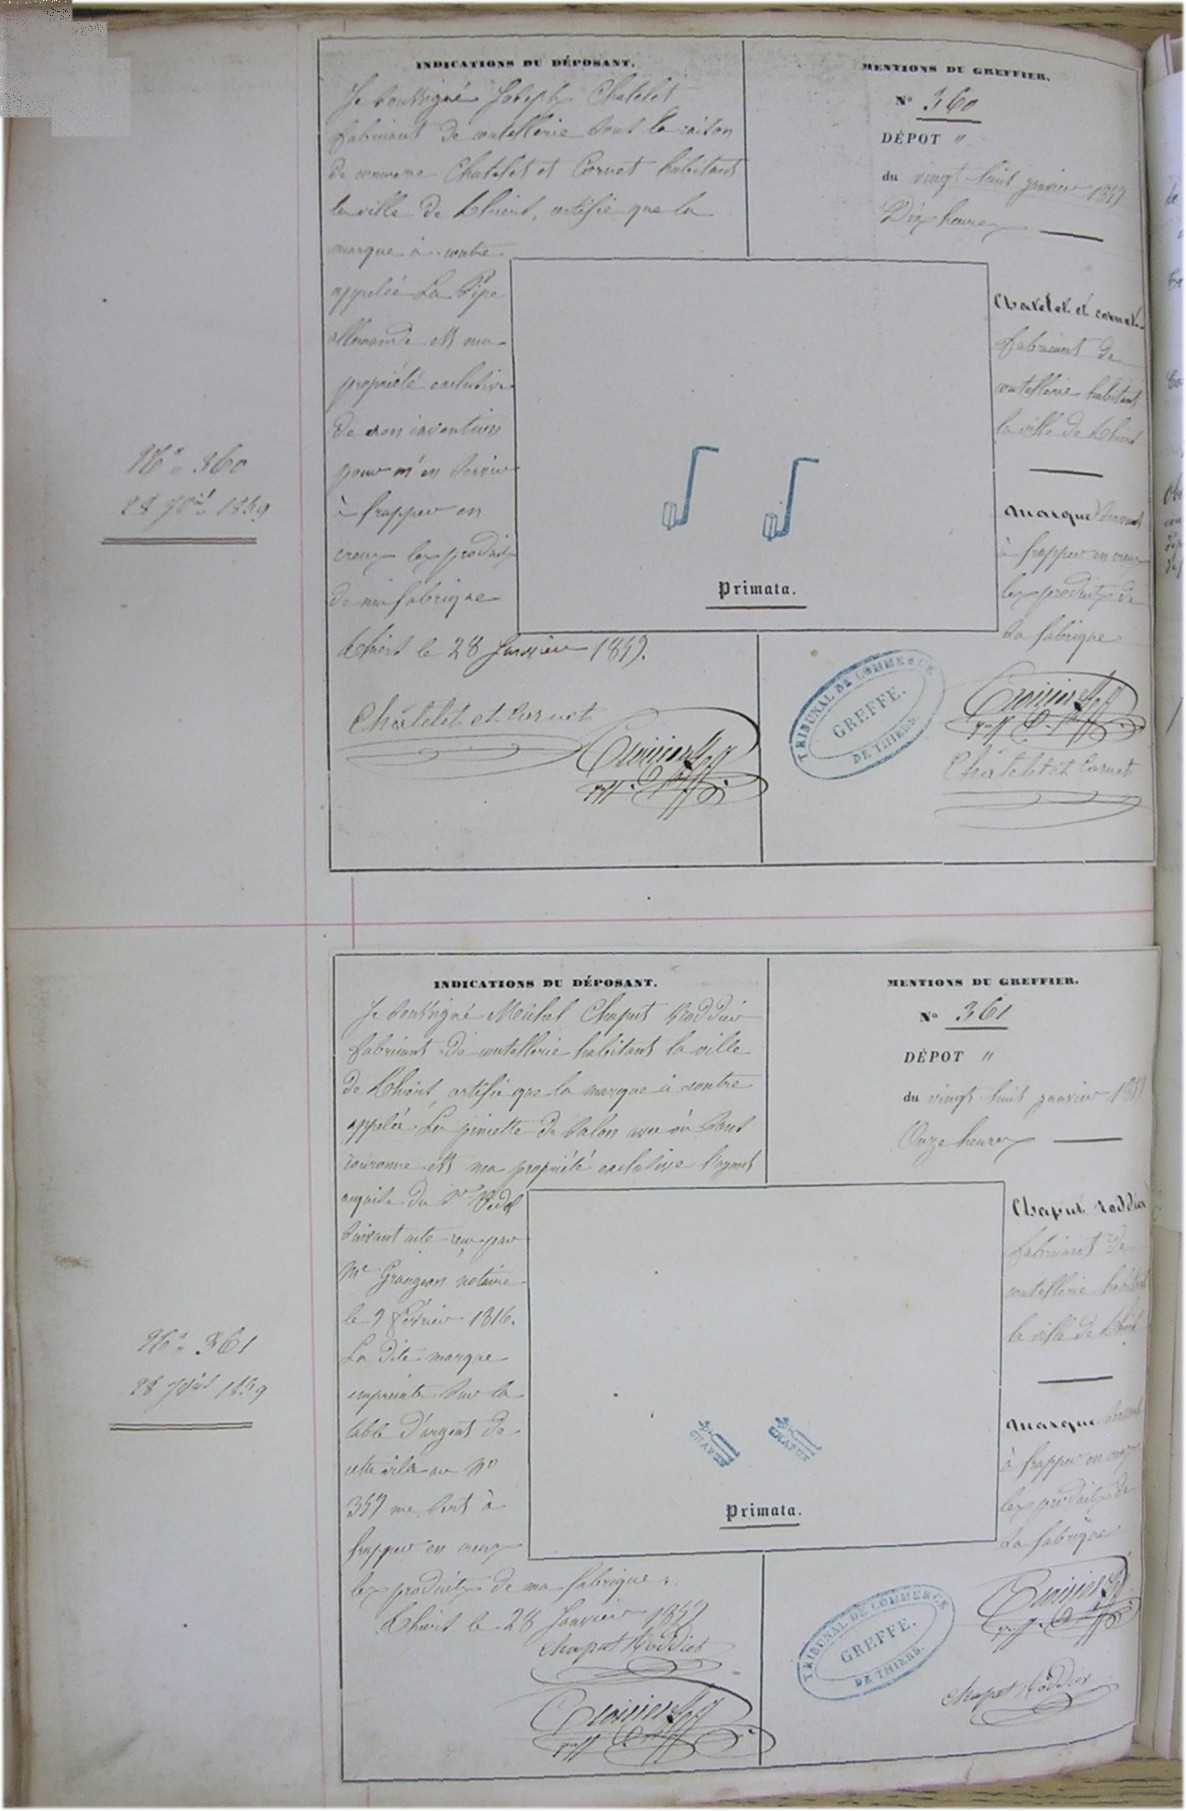 INDICATIONS DU DÉPOSANT.
Je soussigné Joseph Chatelet
fabricant de coutellerie sous la raison
de commerce Chatelet et Cornet habitant
la ville de Thiers, certifie que la
marque ci-contre
appelée La Pipe
allemande est ma
propriété exclusive
de mon invention
pour m'en servir
à frapper en
creux les produits
de ma fabrique
Thiers le 28 Janvier 1859.
Châtelet et Cornet
MENTIONS DU GREFFIER.
N° 360
DÉPOT "
du vingt-huit janvier 1859
Dix heures
Chatelet et Cornet
fabricant de
coutellerie habitant
la ville de Thiers
Marque servant
à frapper en creux
les produits de
sa fabrique
Primata.
TRIBUNAL DE COMMERCE
GREFFE.
DE THIERS.
Châtelet et Cornet
N° 360
28 Jer 1859
INDICATIONS DU DÉPOSANT.
Je soussigné Michel Chaput Roddier
fabricant de coutellerie habitant la ville
de Thiers, certifie que la marque ci-contre
appelée La pincette de salon sans
couronne est ma propriété exclusive l'ayant
acquise du Sr
suivant acte reçu par
Me Grangeon notaire
le 9 février 1816.
La dite marque
empreinte sur la
table d'argent de
cette ville au No
359 me sert à
frapper en creux
les produits de ma fabrique.
Thiers le 28 Janvier 1859
Chaput Roddier
MENTIONS DU GREFFIER.
N° 361
DÉPOT "
du vingt-huit janvier 1859
Onze heures
Chaput Roddier
fabricant de
coutellerie habitant
la ville de Thiers
Marque servant
à frapper en creux
les produits de
sa fabrique
CHAPUT
CHAPUT
Primata.
TRIBUNAL DE COMMERCE
GREFFE.
DE THIERS.
Chaput Roddier
N° 361
28 Jer 1859